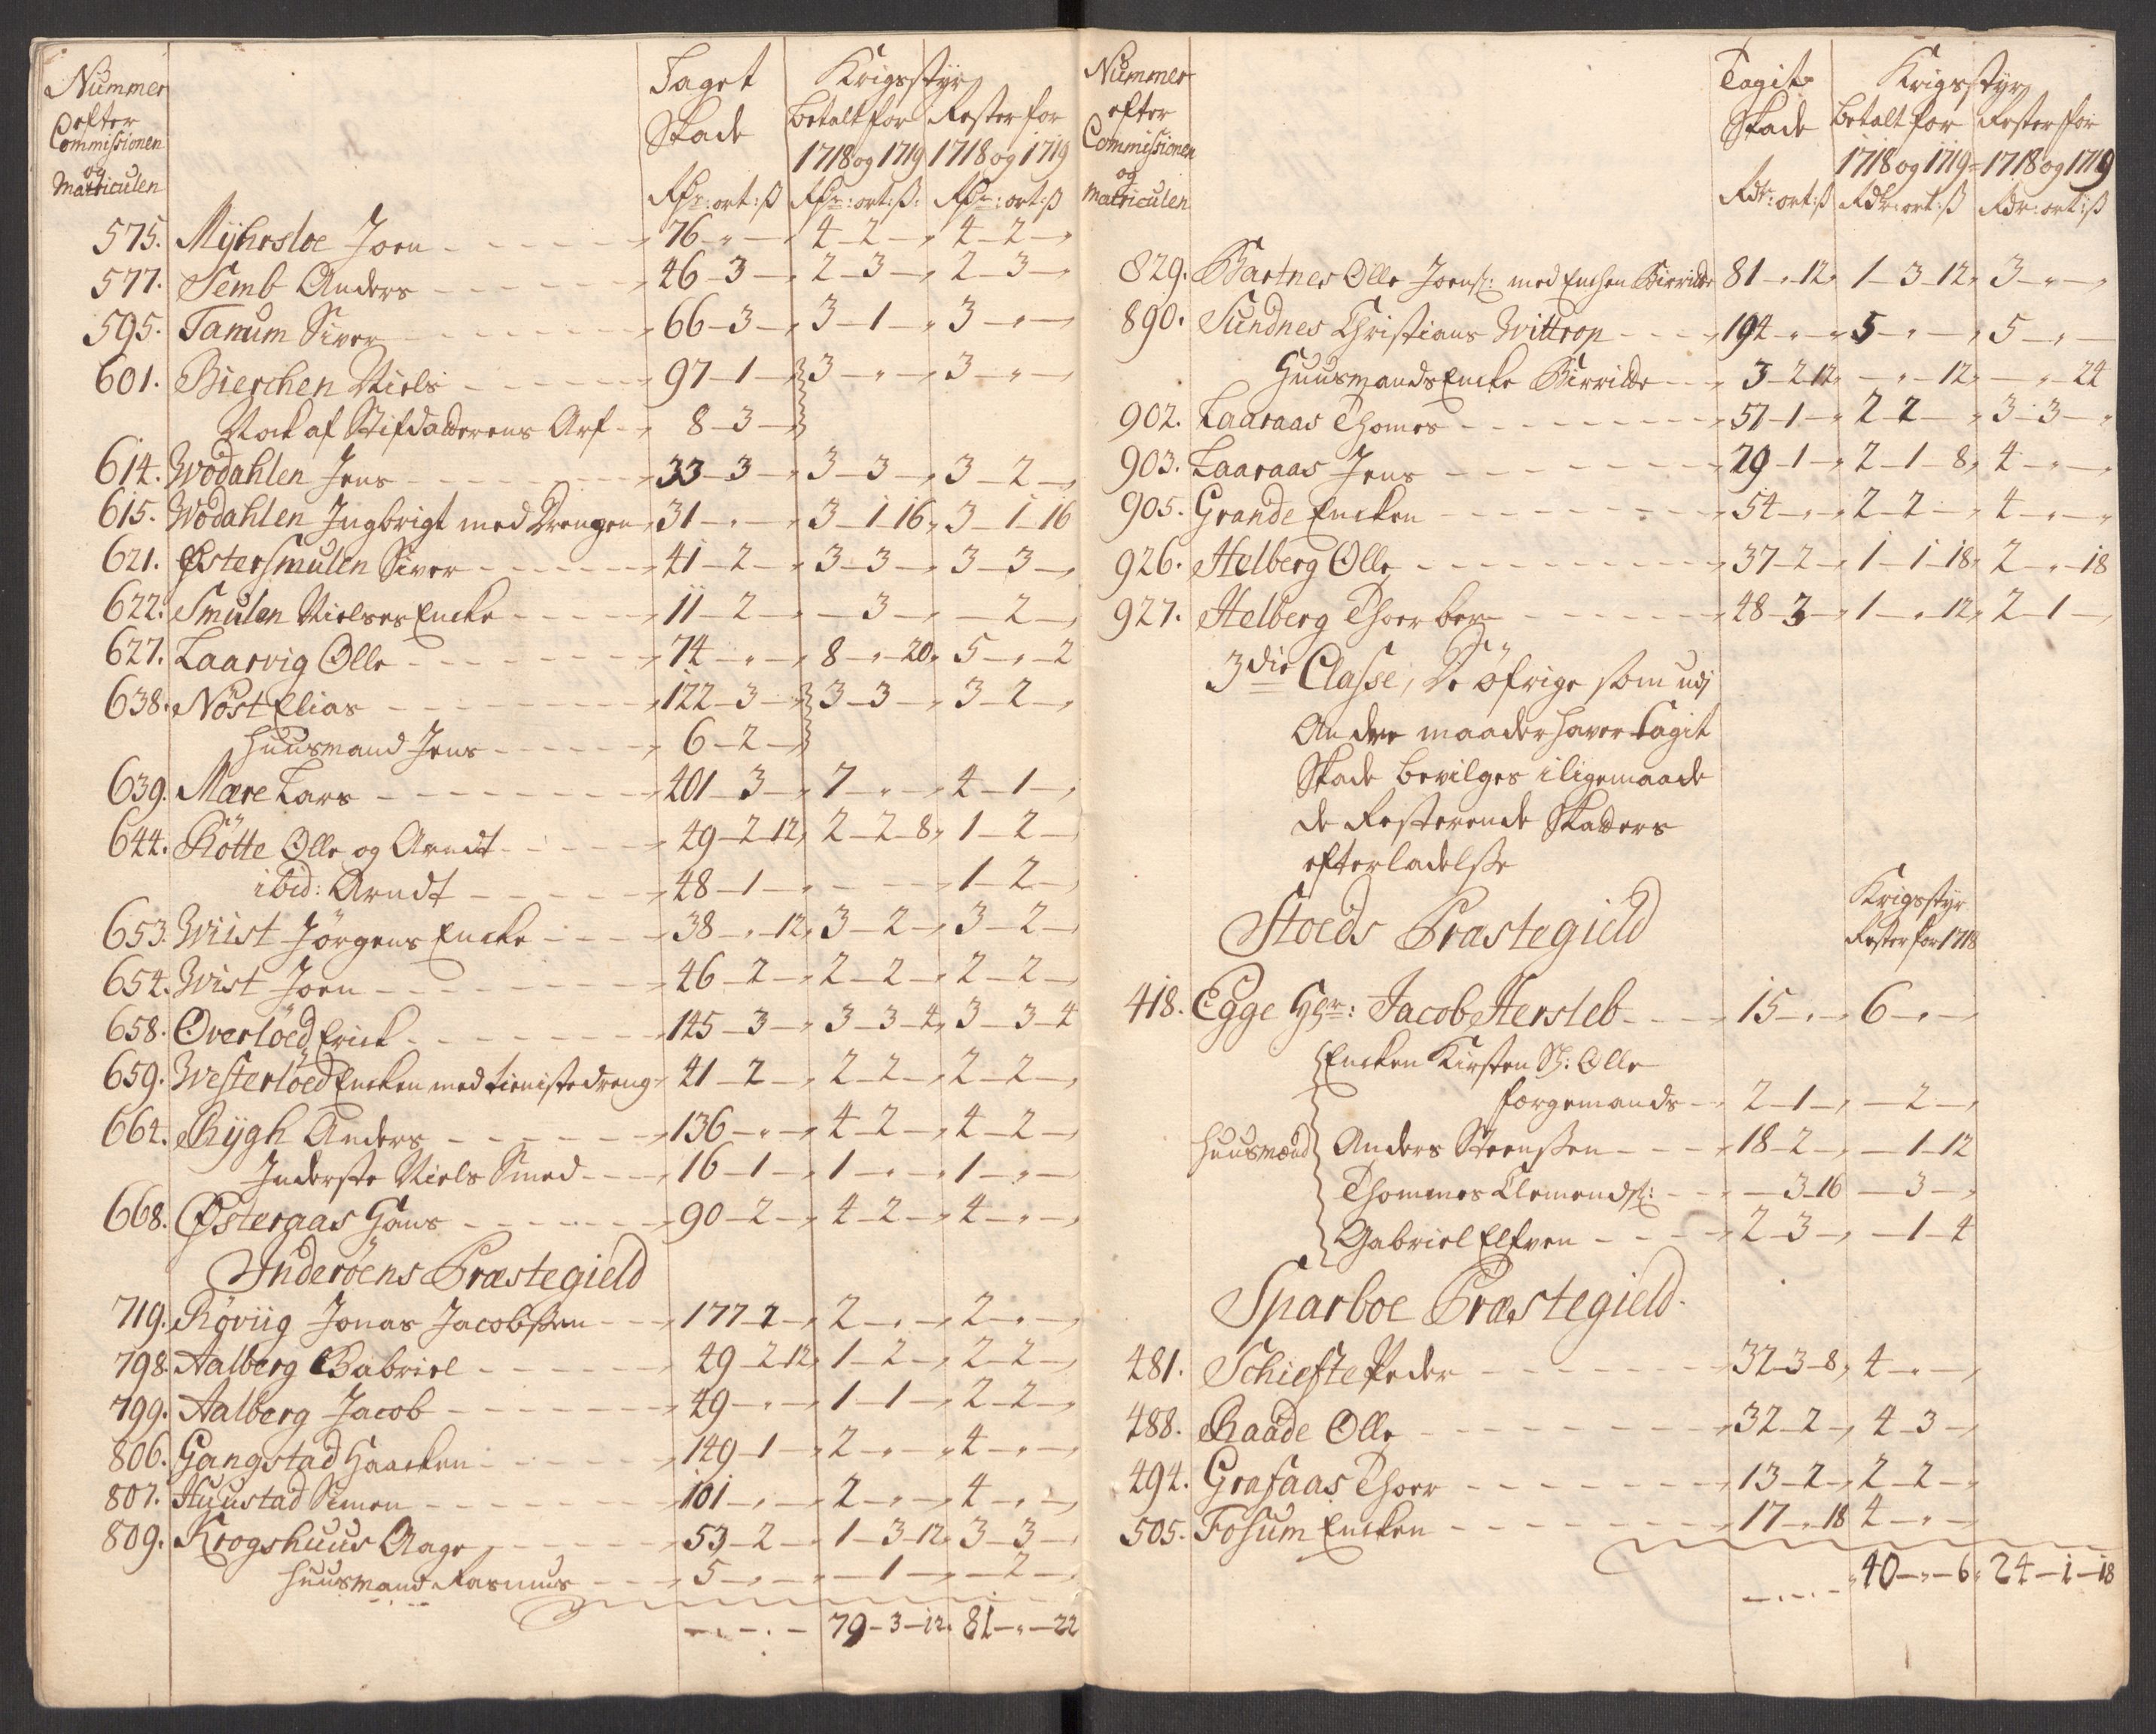 Nummer
efter
Commissionen
og
Matriculen
Taget
Skade
Krigsstyr
betalt for
1718 og 1719
Rester for
1718 og 1719
Rdr: ort: ß Rdr: ort: ß: Rdr: ort: ß
575. Mÿhrsloe Joen 76 - " - " 4 - 2 - " 4 - 2 - "
577. Semb Anders 46 - 3 - " 2 - 3 - " 2 - 3 - "
595. Tanum Siver 66 - 3 - " 3 - 1 - " 3 - " - "
601. Bierchen Niels 97 - 1 - " 3 - " - " 3 - " - "
Nock af Stifdatterens Arf 8 - 3 - "
614. Wodahlen Jens 33 - 3 - " 3 - 3 - " 3 - 2 - "
615. Wodahlen Ingbrigt med Drengen 31 - " - " 3 - 1 - 16 3 - 1 - 16
621. Østersmulen Siver 41 - 2 - " 3 - 3 - " 3 - 3 - "
622. Smulen Nielses Encke 11 - 2 - " - 3 - " - 2 - "
627. Laarvig Olle 74 - " - " 8 - " - 20 5 - " - 2
638. Nöst Elias 122 - 3 - " 3 - 3 - " 3 - 2 - "
Huusmand Jens 6 - 2 - "
639. Mære Lars 401 - 3 - " 7 - " - " 4 - 1 - "
644. Rötte Olle og Arndt 49 - 2 - 12 2 - 2 - 8 1 - 2 - "
ibid: Arndt 48 - 1 - " - - - 1 - 2 - "
653. Wiist Jörgens Encke 38 - " - 12 3 - 2 - " 3 - 2 - "
654. Wist Joen 46 - 2 - " 2 - 2 - " 2 - 2 - "
658. Overlöed Erick 145 - 3 - " 3 - 3 - 4 3 - 3 - 4
659. Westerlöed Encken med tieniste dreng 41 - 2 - " 2 - 2 - " 2 - 2 - "
664. Rÿgh Anders 136 - " - " 4 - 2 - " 4 - 2 - "
Inderste Niels Smed 16 - 1 - " 1 - " - " 1 - " - "
668. Østeraas Hans 90 - 2 - " 4 - 2 - " 4 - " - "
Inderöens Præstegield
719. Röviig Jonas Jacobssen 177 - 2 - " 2 - " - " 2 - " - "
798. Aalberg Gabriel 49 - 2 - 12 1 - 2 - " 2 - 2 - "
799. Aalberg Jacob 49 - " - " 1 - 1 - " 2 - 2 - "
806. Gangstad Haacken 149 - 1 - " 2 - " - " 4 - " - "
807. Huustad Simen 101 - " - " 2 - " - " 4 - " - "
809. Krogshuus Aage 53 - 2 - " 1 - 3 - 12 3 - 3 - "
Huusmand Rasmus 5 - " - " - 1 - " - 2 - "
79 - 3 - 12 81 - " - 22
Nummer
efter
Commissionen
og
Matriculen
Tagit
Skade
Krigsstyr
betalt for
1718 og 1719
Rester for
1718 og 1719
Rdr: ort: ß Rdr: ort: ß Rdr: ort: ß
829. Bartnes Olle Joens: med Enchen Birritte 81 - " - 12 1 - 3 - 12 3 - " - "
890. Sundnes Christians Wittrop 194 - " - " 5 - " - " 5 - " - "
Huusmands Encke Birritte 3 - 2 - 12 - " - 12 - " - 24
902. Laaraas Thomes 57 - 1 - " 2 - 2 - " 3 - 3 - "
903. Laaraas Jens 29 - 1 - " 2 - 1 - 8 4 - " - "
905. Grande Encken 54 - " - " 2 - 2 - " 4 - " - "
926. Helberg Olle 37 - 2 - " 1 - 1 - 18 2 - " - 18
927. Helberg Thoerber 48 - 3 - " 1 - " - 12 2 - 1 - "
3die Classe, De öfrige som udj
Andre maader haver tagit
Skade bevilges i ligemaade
de Resterende Skatters
efterladelsse
Stoeds Præstegield
Krigsstyr
Rester for 1718
418. Egge Hr: Jacob Hersleb 15 - " - " 6 - " - "
Encken Kirsten Sl: Olle
Færgemands 2 - 1 - " - 2 - "
Huusmænd Anders Steenssen 18 - 2 - " - 1 - 12
Thommes Clemends: - 3 - 16 - 3 - "
Gabriel Elfven 2 - 3 - " - 1 - 4
Sparboe Præstegield
481. Schiefte Peder 32 - 3 - 8 4 - " - "
488. Raade Olle 32 - 2 - " 4 - 3 - "
494. Grafaas Thoer 13 - 2 - " 2 - 2 - "
505. Fosum Encken 17 - " - 18 4 - " - "
40 - " - 6 24 - 1 - 18